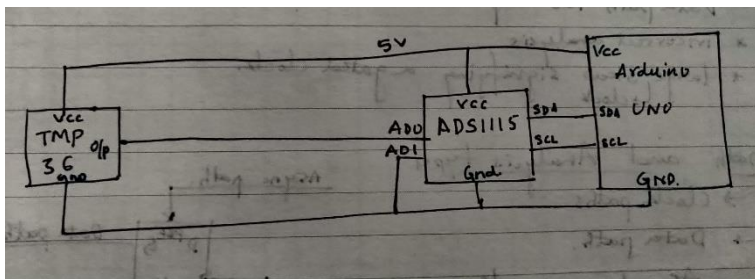 5V
Vcc
TMP
36
O/p
GND
AD0
AD1
Vcc
ADS1115
Gnd
SDA
SCL
Vcc
Arduino
UNO
SDA
SCL
GND.